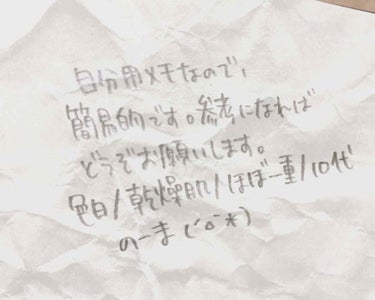 自分用メモなので、
簡易的です。参考になれば
どうぞお願いします。
色白/乾燥肌/ほぼ一重/10代
のーま(´ㅎ`*)